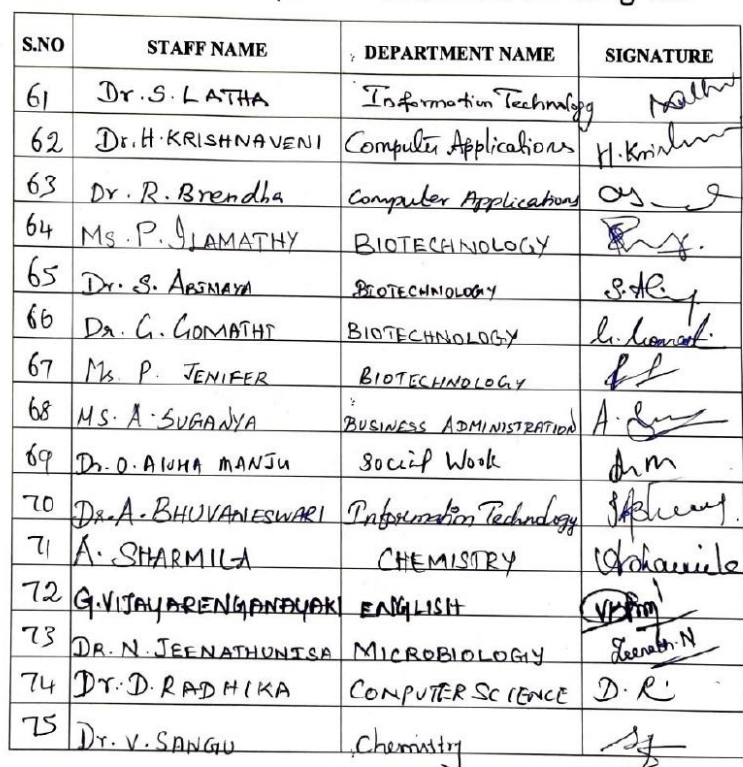 S.NO STAFF NAME DEPARTMENT NAME SIGNATURE
61 Dr. S. LATHA Information Technology
62 Dr. H. KRISHNAVENI Computer Applications H. Krishna
63 Dr. R. Brendha Computer Applications
64 Ms. P. ILAMATHY BIOTECHNOLOGY
65 Dr. S. ABINAYA BIOTECHNOLOGY
66 Dr. G. GOMATHI BIOTECHNOLOGY
67 Ms. P. JENIFER BIOTECHNOLOGY
68 MS. A. SUGANYA BUSINESS ADMINISTRATION
69 Dr. O. MANJU Social Work
70 Dr. A. BHUVANESWARI Information Technology
71 A. SHARMILA CHEMISTRY
72 G. VIJAYARENGANAYAKI ENGLISH
73 DR. N. JEENATHUNISA MICROBIOLOGY Jeenath. N
74 Dr. D. RADHIKA COMPUTER SCIENCE D. R
75 Dr. V. SANGU Chemistry